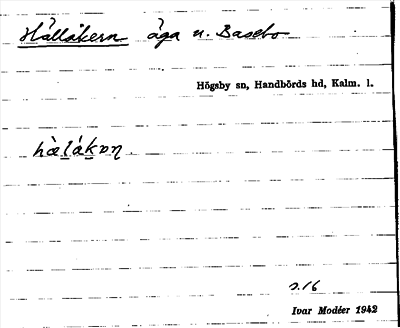 Hålläkern åga u. Basebo
Högsby sn, Handbörds hd, Kalm. l.
hæ̀lákɐn.
s.16
Ivar Modéer 1942